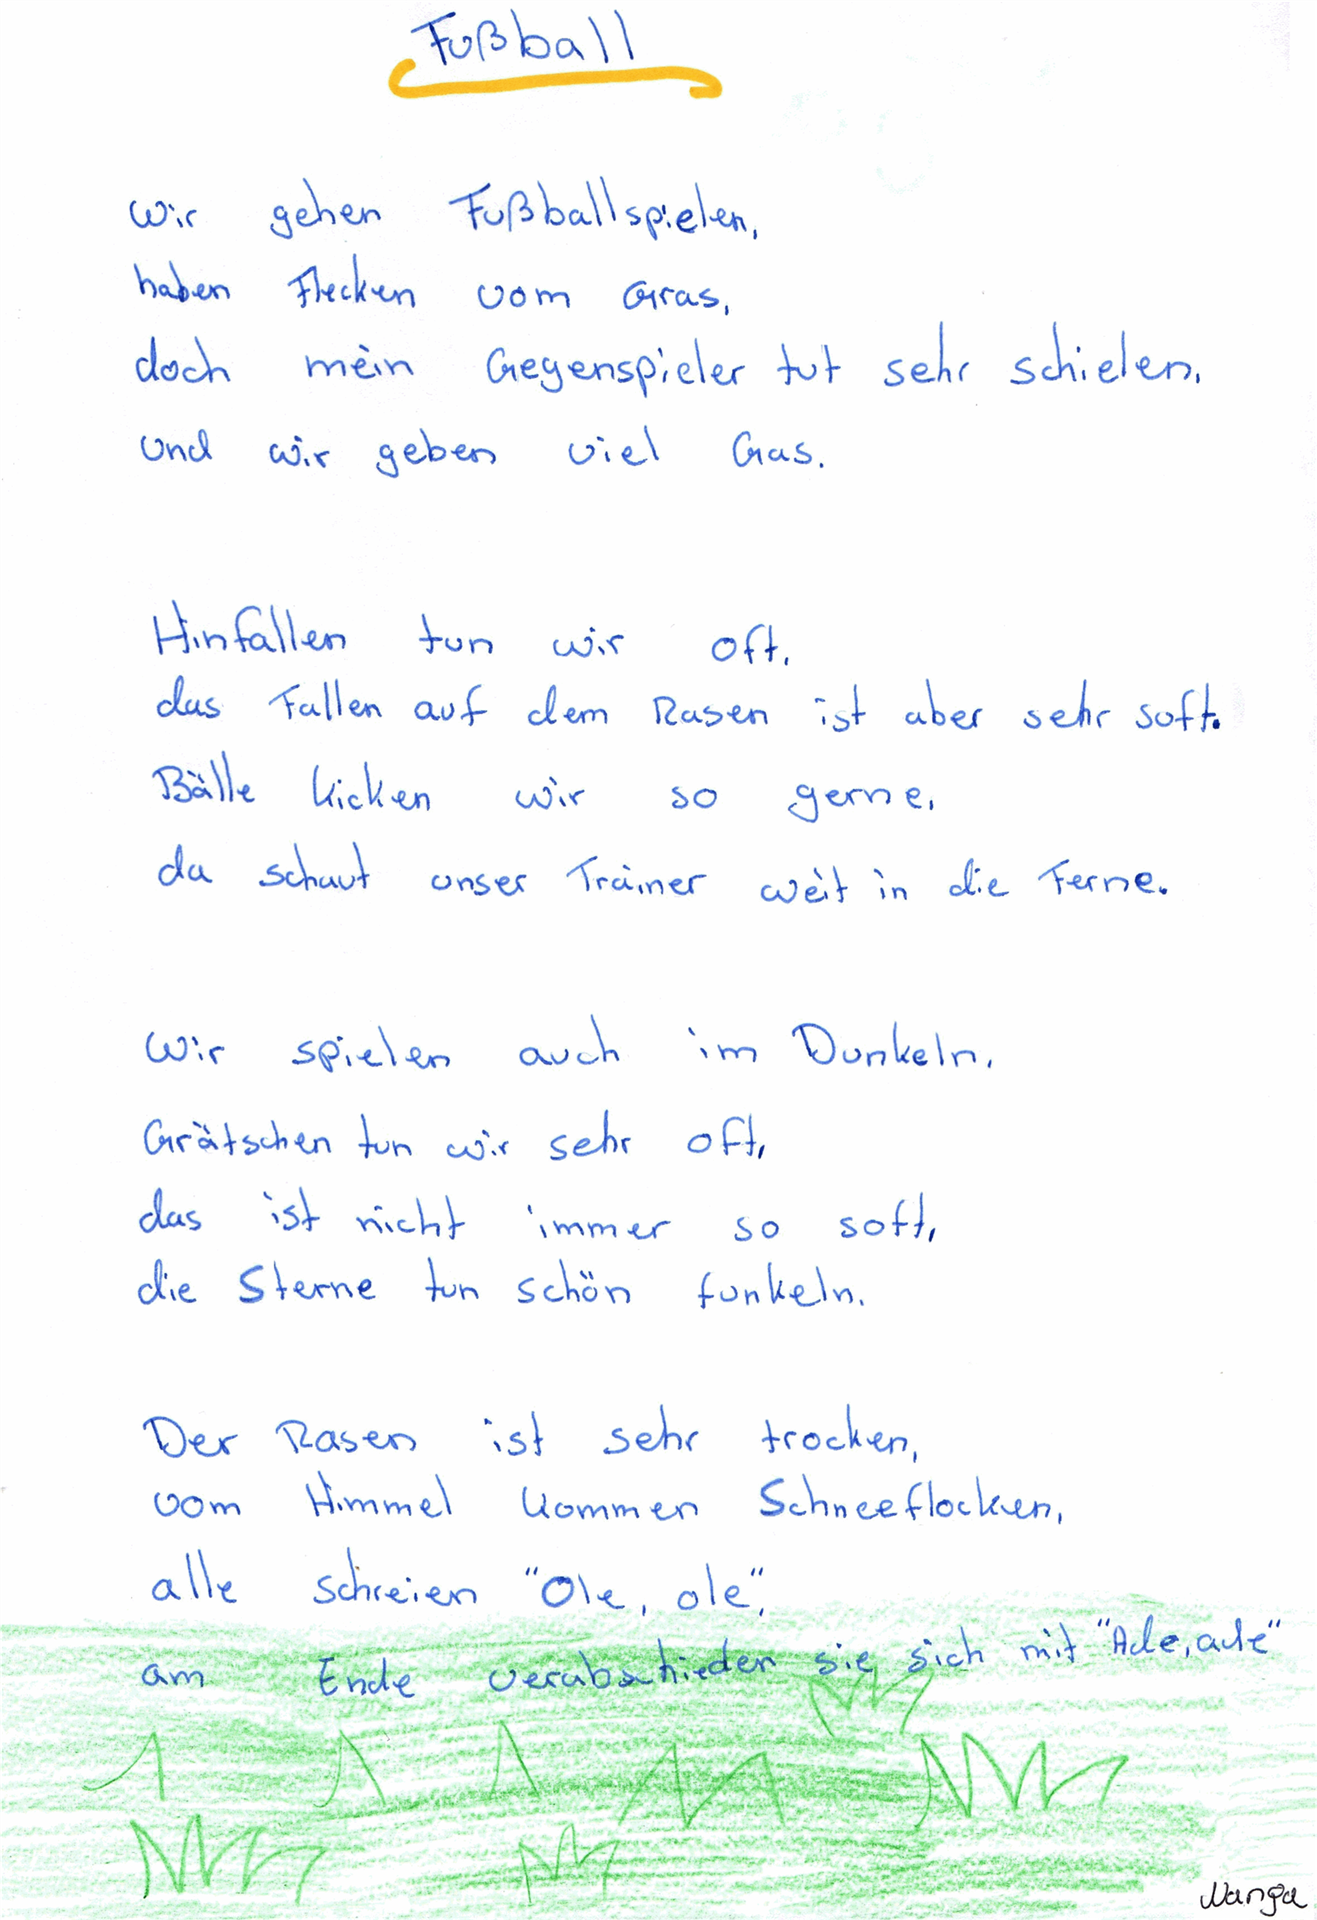 Fußball
Wir gehen Fußballspielen,
haben Flecken vom Gras,
doch mein Gegenspieler tut sehr schielen,
und wir geben viel Gas.
Hinfallen tun wir oft,
das Fallen auf dem Rasen ist aber sehr soft.
Bälle kicken wir so gerne,
da schaut unser Trainer weit in die Ferne.
Wir spielen auch im Dunkeln,
Grätschen tun wir sehr oft,
das ist nicht immer so soft,
die Sterne tun schön funkeln.
Der Rasen ist sehr trocken,
vom Himmel kommen Schneeflocken,
alle schreien "Ole, ole",
am Ende verabschieden sie sich mit "Ade, ade"